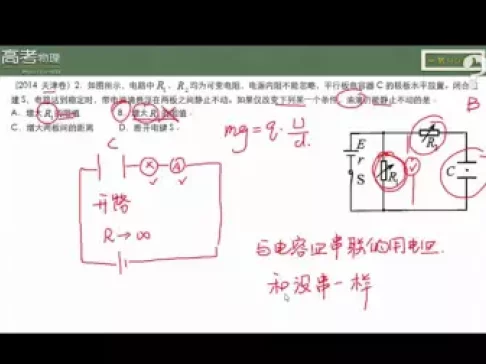 高考物理
(2014 天津卷) 2. 如图所示，电路中R₁、R₂均为可变电阻，电源内阻不能忽略，平行板电容器C的极板水平放置，闭合电
键S，电路达到稳定时，带电油滴悬浮在两板之间静止不动。如果仅改变下列某一个条件，油滴仍能静止不动的是
A．增大R₁的阻值 B．增大R₂的阻值
C．增大两板间的距离 D．断开电键S
B
mg = q·U/d.
C
X A
开路
R→∞
E
r
S
R₁
V
R₂
C
与电容器串联的用电器
和没串一样